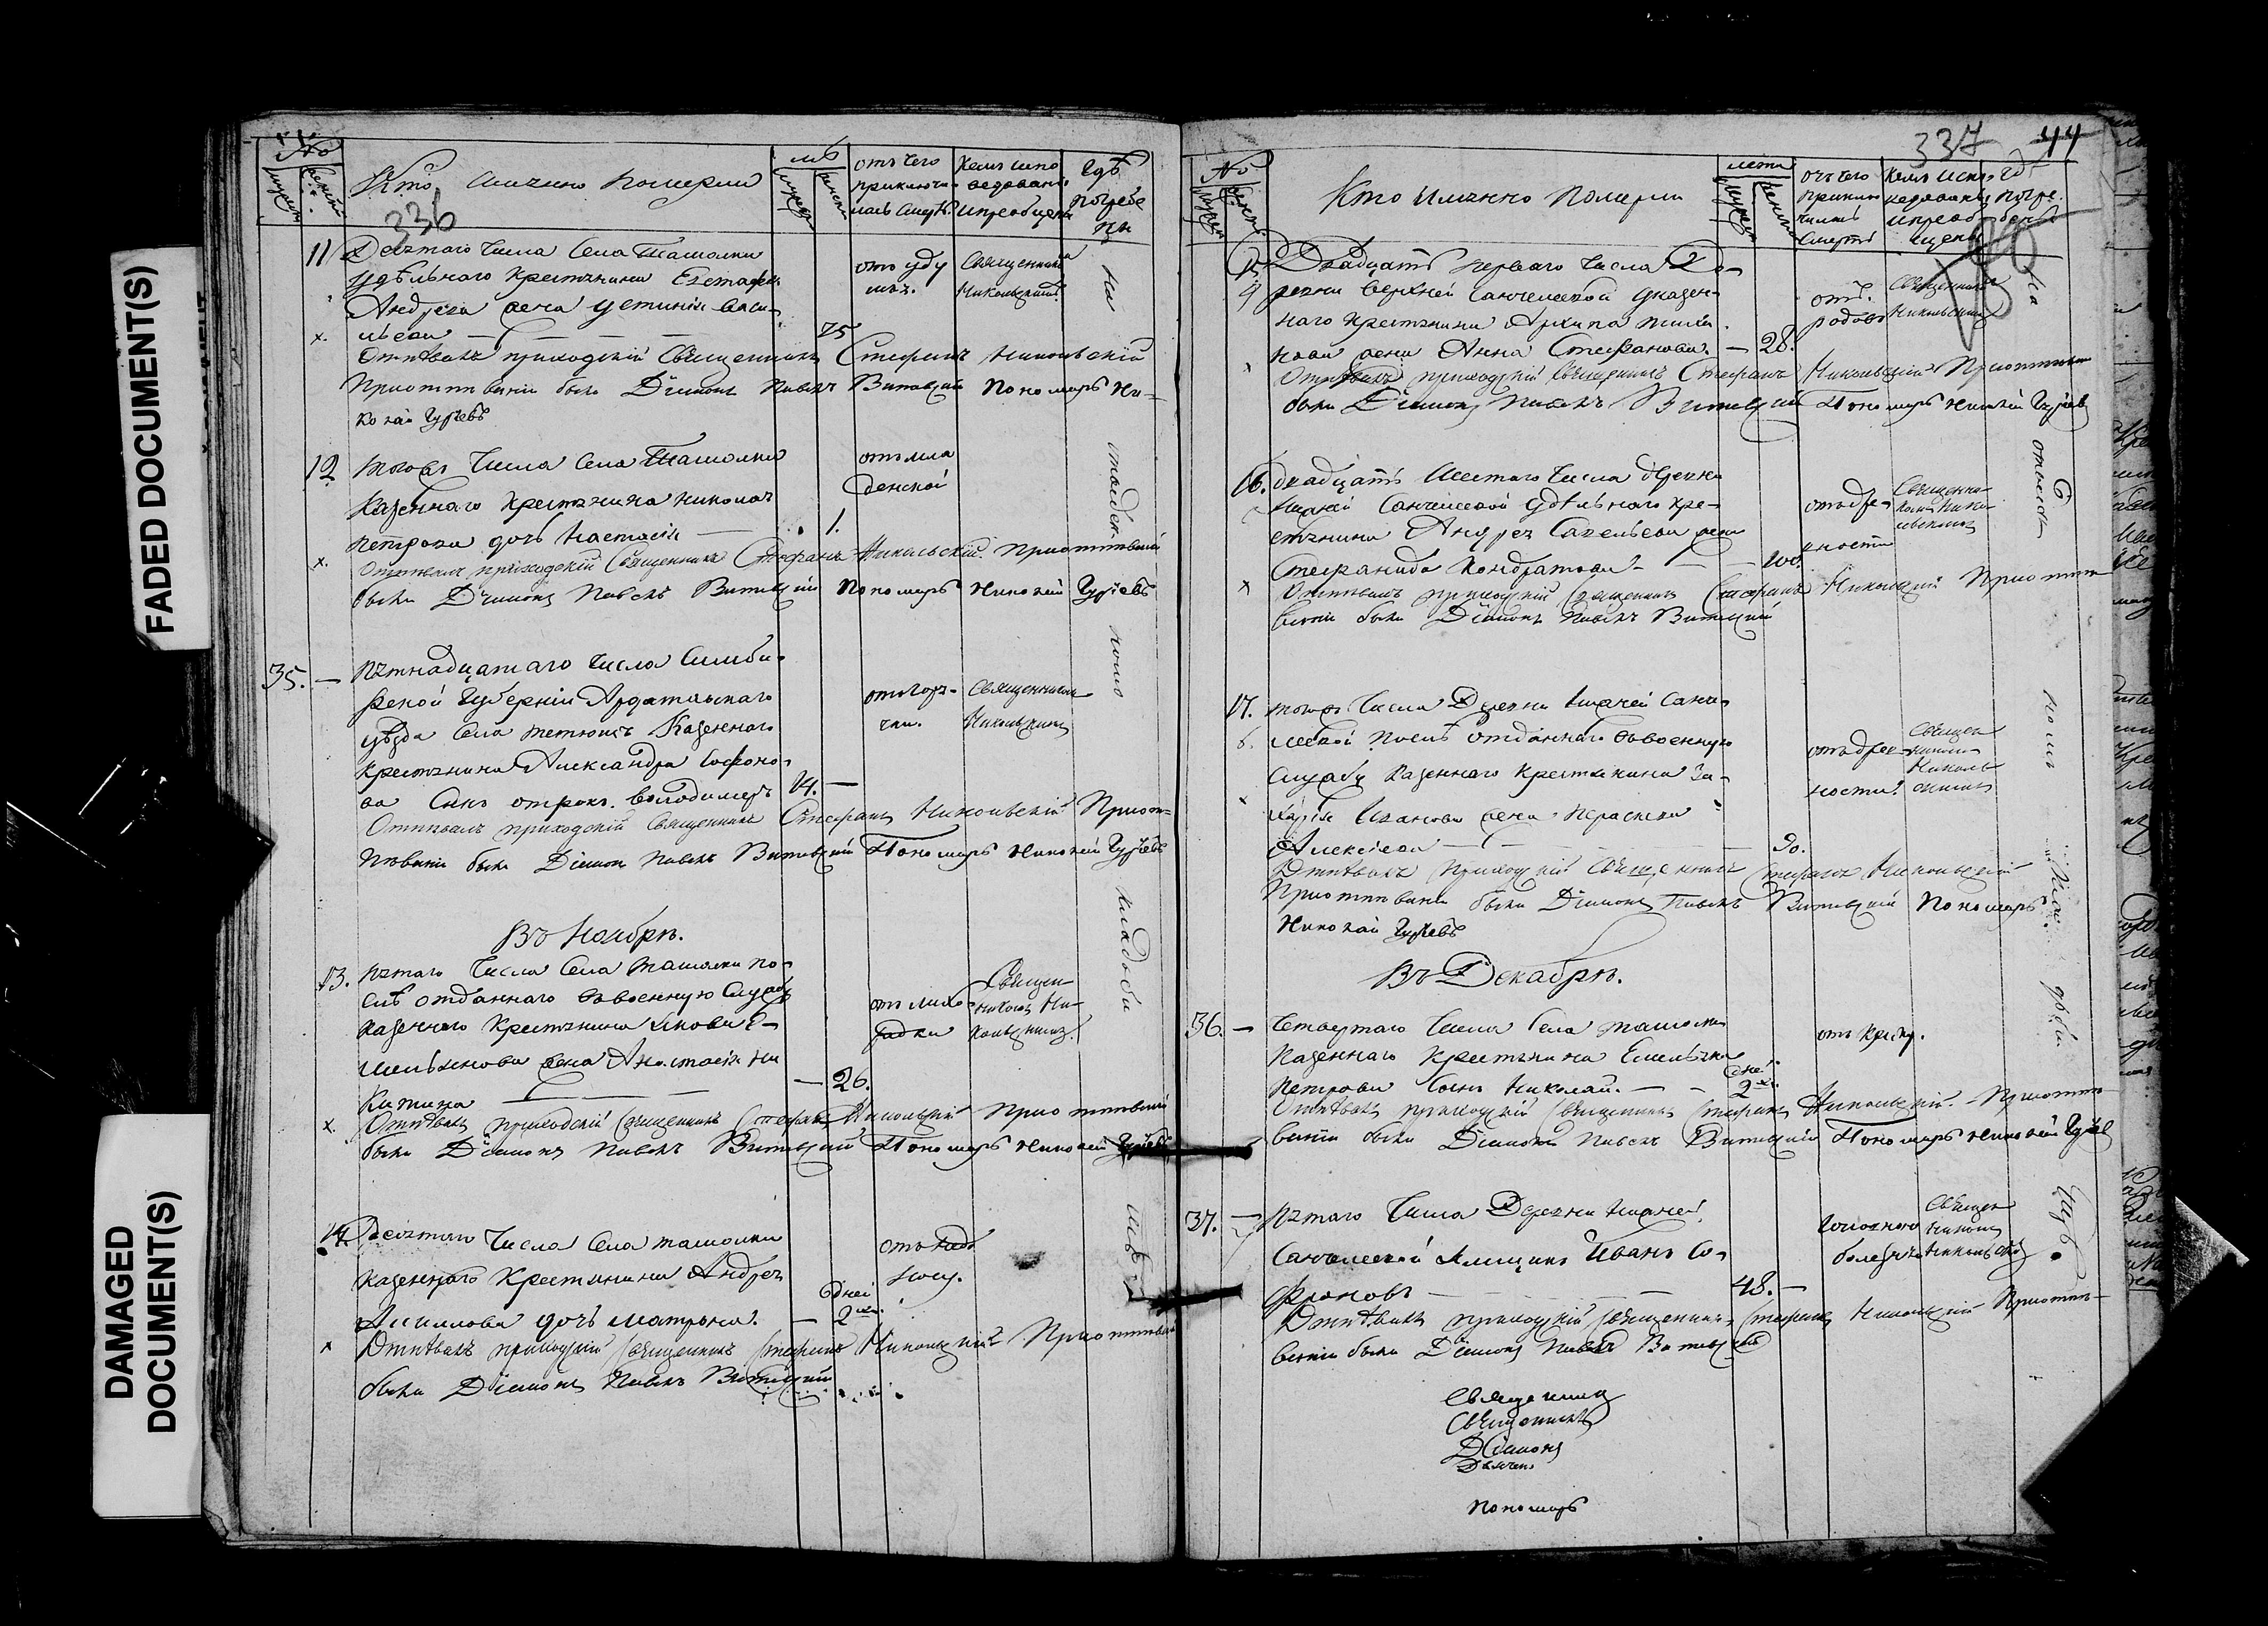 FADED DOCUMENT(S)
DAMAGED
DOCUMENT(S)
№
Кто именно померли
336
отъ чего
приключи-
лась смерть
кемъ испо
ведованы
и приобщены
гдѣ
погребе
ны
11
Десятаго числа села Ташолки
удѣльнаго крестьянина
Андреева жена Устинія Васи-
льева
75
отъ уду
шья.
Священникомъ
Никольскимъ
на
Отпѣвалъ приходскій Священникъ Стефанъ Никольскій
При отпѣваніи были Діаконъ Павелъ Витевскій Пономарь Ни-
колай Гурьевъ
12
Тогожъ числа села Ташолки
казеннаго крестьянина Николая
Петрова дочь Настасія
1.
отъ мла
денской
Отпѣвалъ приходскій Священникъ Стефанъ Никольскій При отпѣваніи
были Діаконъ Павелъ Витевскій Пономарь Николай Гурьевъ
35.
Пятнадцатаго числа Симби-
рской Губерніи Ардатовскаго
уѣзда села казеннаго
крестьянина Александра Софоно-
ва сынъ отрокъ Володимеръ
14.
отъ горя-
чки.
Священникомъ
Никольскимъ
Отпѣвалъ приходскій Священникъ Стефанъ Никольскій При от-
пѣваніи были Діаконъ Павелъ Витевскій Пономарь Николай Гурьевъ
Въ Ноябрѣ.
13.
Пятаго числа села Ташолки по-
слѣ отданнаго въ военную службу
казеннаго крестьянина Якова Е-
мельянова жена Анастасія Ни
китина
26.
отъ лихо-
радки
Священ
никомъ Ни-
кольскимъ
Отпѣвалъ приходскій Священникъ Стефанъ Никольскій При отпѣваніи
были Діаконъ Павелъ Витевскій Пономарь Николай Гурьевъ
14.
Десятаго числа села Ташолки
казеннаго крестьянина Андрея
дочь Матрона.
дней
2
Отпѣвалъ приходскій Священникъ Стефанъ Никольскій При отпѣваніи
были Діаконъ Павелъ Витевскій
337
44
№
Кто именно померли
лѣта
отъ чего
приклю
чилась
смерть
кемъ испо
ведованы
и приоб
щены
погре
бены
15
Двадцать перваго числа де-
ревни Верхней Санчелеевой указен-
наго крестьянина Архипа Тихо-
нова жена Анна Стефанова.
28.
отъ
родовъ
Священникомъ
Никольскимъ
на
Отпѣвалъ приходскій Священникъ Стефанъ Никольскій При отпѣваніи
были Діаконъ Павелъ Витевскій Пономарь Николай Гурьевъ
16.
Двадцать шестаго числа деревни
Нижней Санчелеевой удѣльнаго кре-
стьянина Андрея Савельева жена
Степанида Кондратова
100.
отъ дре-
вности
Священни-
комъ Нико
льскимъ
Отпѣвалъ приходскій Священникъ Стефанъ Никольскій При отпѣ
ваніи были Діаконъ Павелъ Витевскій
17.
Тогожъ числа деревни Нижней Санче
леевой послѣ отданнаго въ военную
службу казеннаго крестьянина За-
харія Иванова жена Параскева
Алексѣева
90.
отъ древ-
ности
Священ
никомъ
Николь
скимъ
Отпѣвалъ приходскій Священникъ Стефанъ Никольскій
При отпѣваніи были Діаконъ Павелъ Витевскій Пономарь
Николай Гурьевъ
Въ Декабрѣ.
36.
Четвертаго числа села Ташолки
казеннаго крестьянина Емельяна
Петрова сынъ Николай.
дней
2
отъ
Отпѣвалъ приходскій Священникъ Стефанъ Никольскій При отпѣ
ваніи были Діаконъ Павелъ Витевскій Пономарь Николай Гурьевъ
37.
Пятаго числа деревни Нижней
Санчелеевой ямщикъ Иванъ Со-
фроновъ
48.
болезнью
Священ
никомъ
Никольскимъ
Отпѣвалъ приходскій Священникъ Стефанъ Никольскій При отпѣ-
ваніи были Діаконъ Павелъ Витевскій
Священникъ
Священникъ
Діаконъ
Дьячекъ
Пономарь